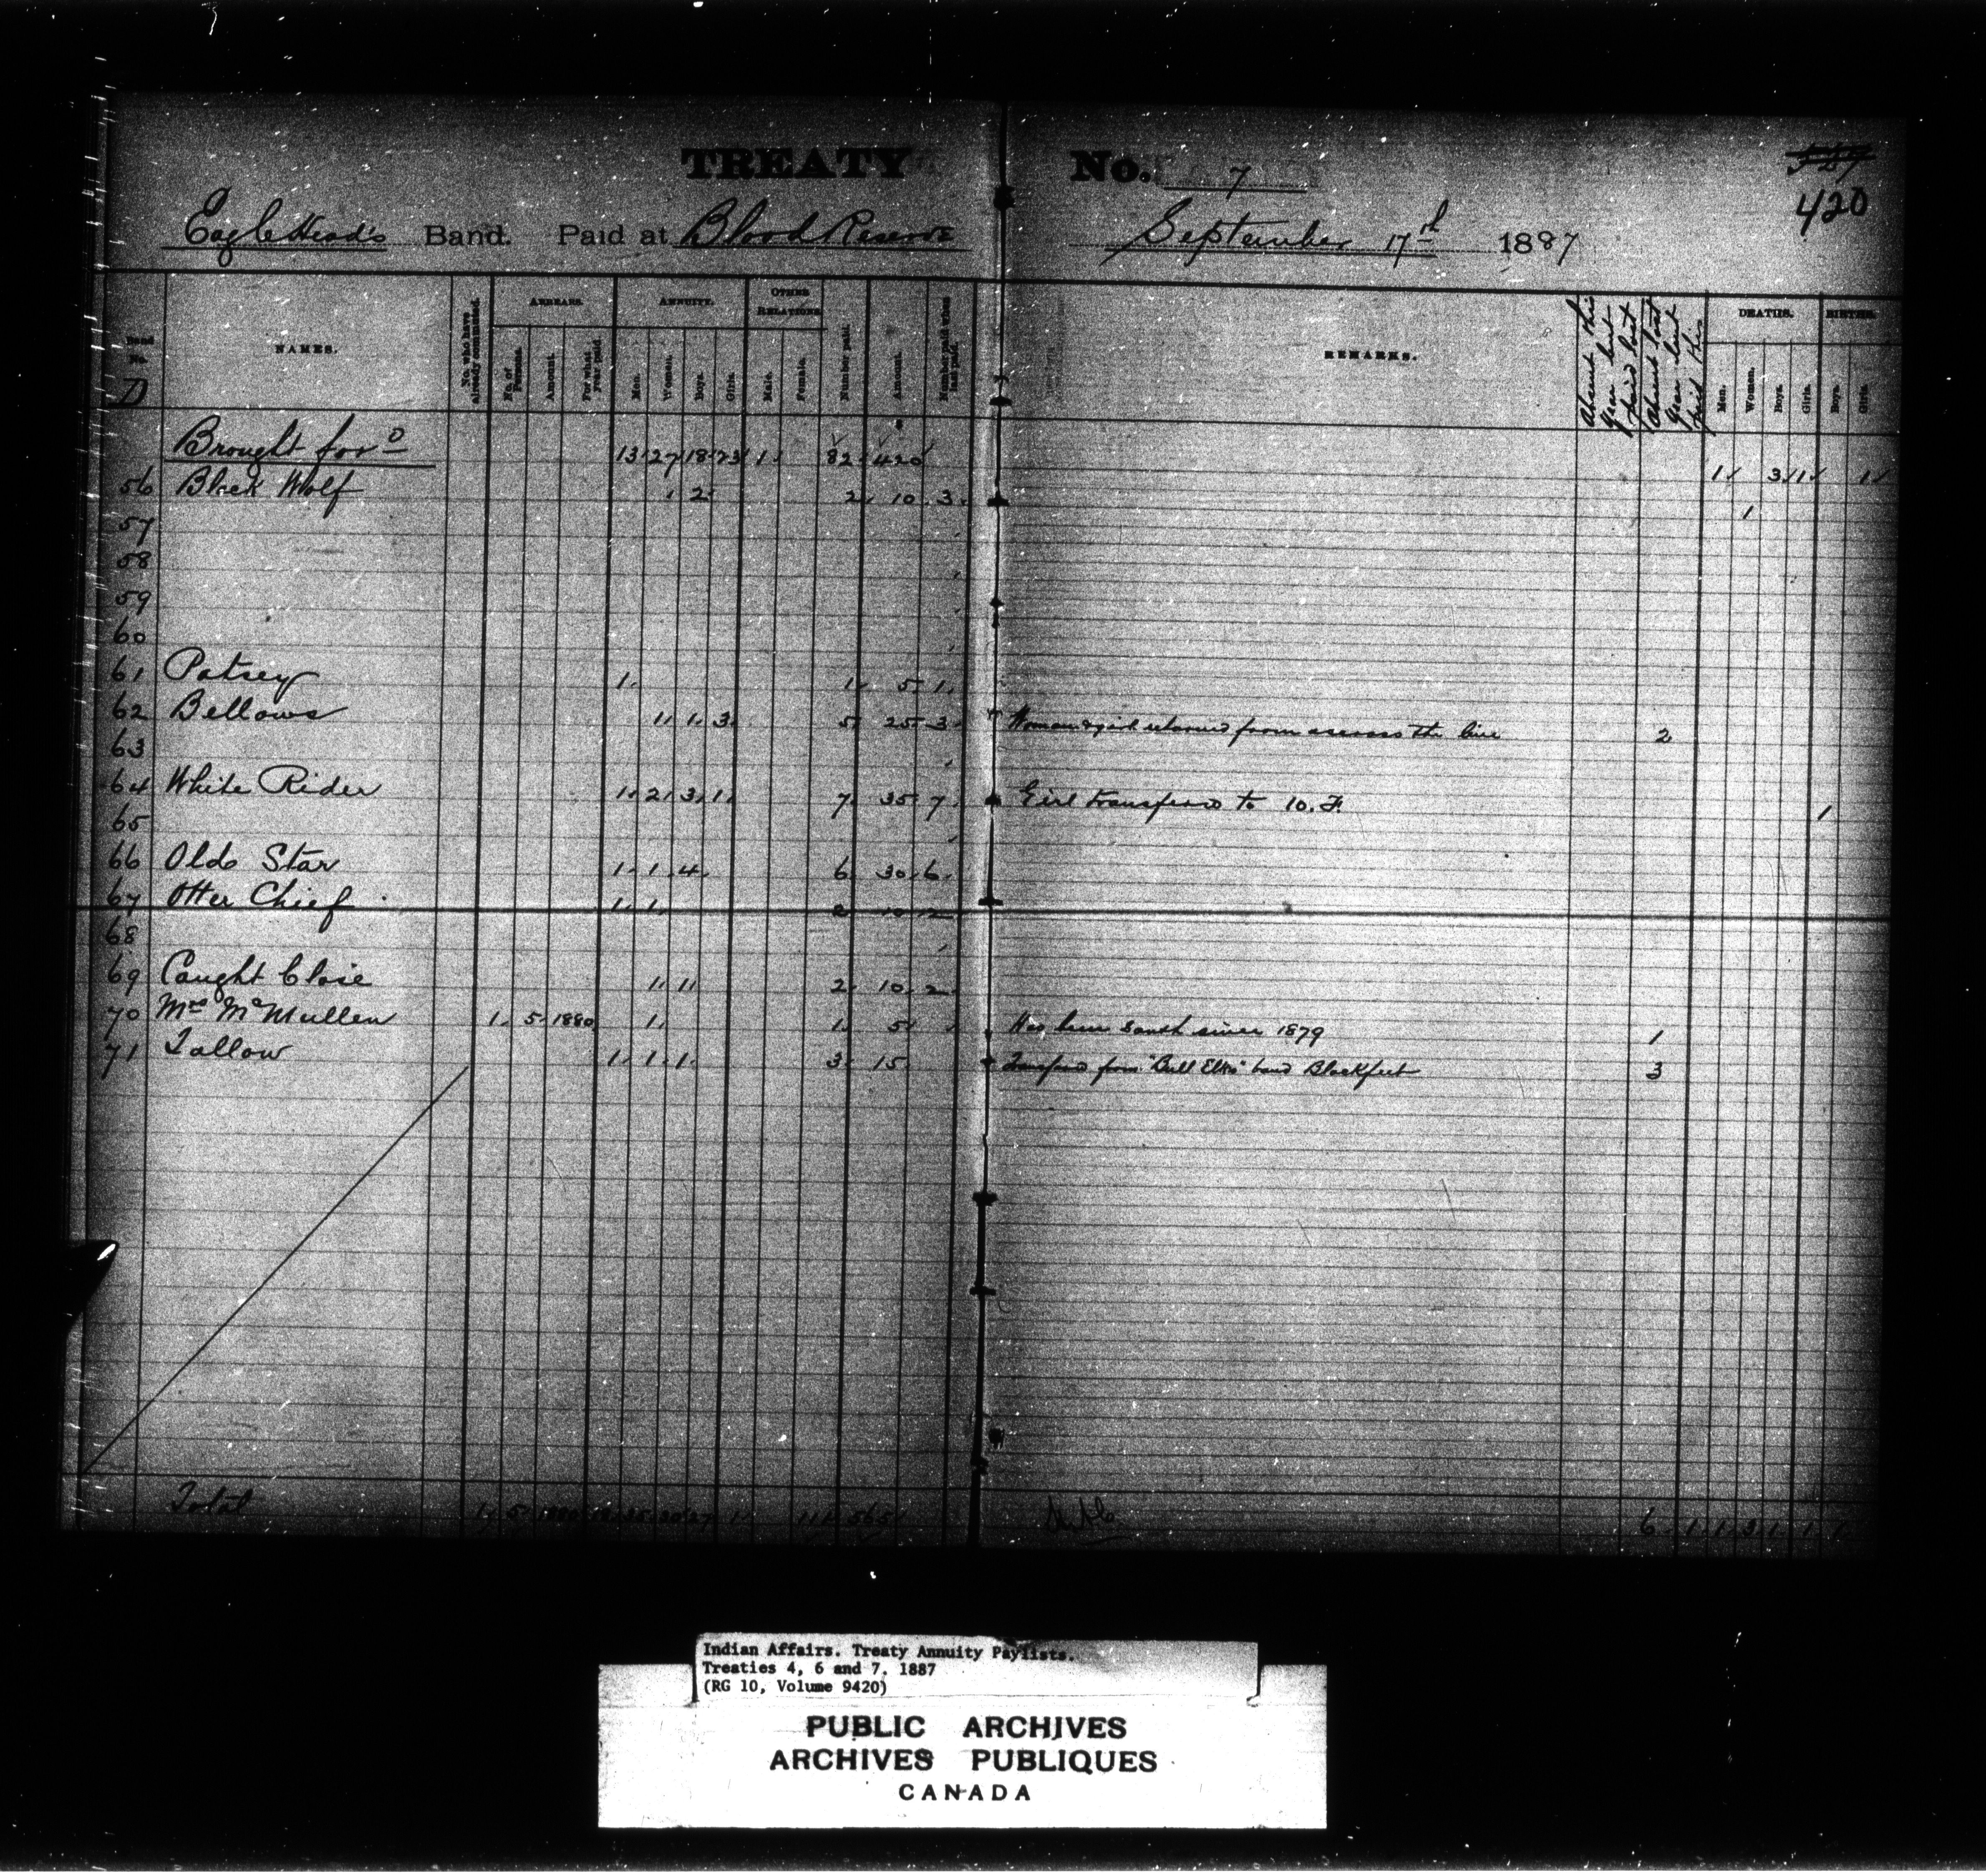 TREATY No. 7
527
420
Eagle Head's Band. Paid at Blood Reserve September 17th 1887
Band No. D
NAMES.
No. who have already commuted.
ARREARS.
No. of Persons.
Amount.
For what year paid.
ANNUITY.
Men.
Women.
Boys.
Girls.
OTHER RELATIONS
Male.
Female.
Number paid.
Amount.
Number paid when last paid.
REMARKS.
Absent this year but paid last
Absent last year but paid this
DEATHS.
Men.
Women.
Boys.
Girls.
BIRTHS.
Boys.
Girls.
Brought for'd 13 27 18 23 1 82 420 1 3 1 1
56 Black Wolf 2 2 10 3 1
57
58
59
60
61 Patsey 1 1 5 1
62 Bellows 1 1 3 5 25 3 Woman & girl returned from across the line 2
63
64 White Rider 1 2 3 1 7 35 7 Girl transferd to 10. F. 1
65
66 Old Star 1 1 4 6 30 6
67 Otter Chief 1 1 2 10 2
68
69 Caught Close 1 1 2 10 2
70 Mrs McMullen 1 5 1880 1 1 5 Has been south since 1879 1
71 Tallow 1 1 1 3 15 Transferd from "Bull Elk's" band Blackfeet 3
Total 1 5 1880 35 30 27 1 111 565 6 1 1 3 1 1 1
Indian Affairs. Treaty Annuity Paylists.
Treaties 4, 6 and 7. 1887
(RG 10, Volume 9420)
PUBLIC ARCHIVES
ARCHIVES PUBLIQUES
CANADA